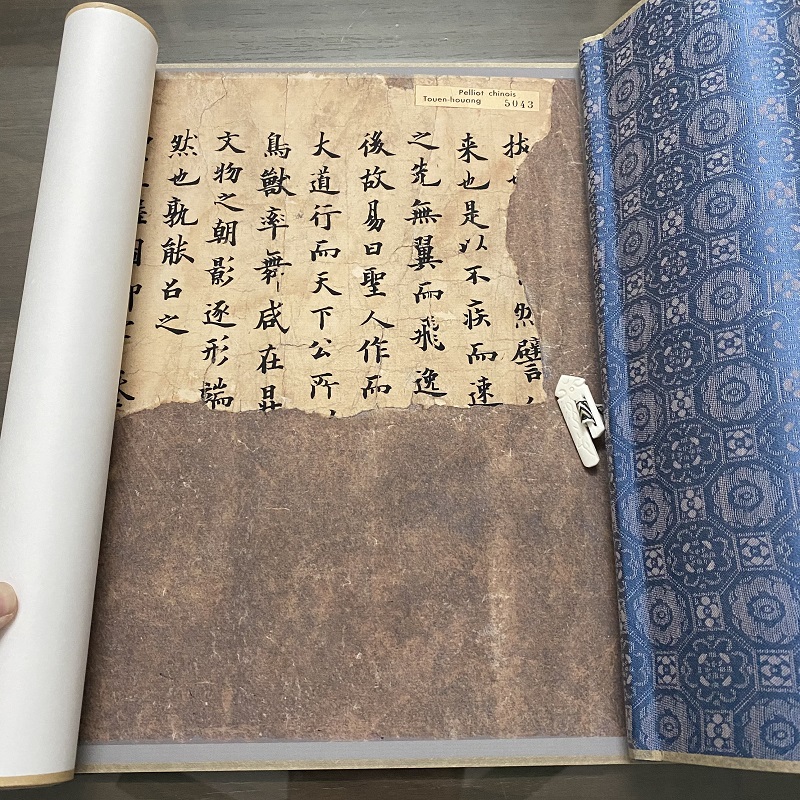 Pelliot chinois
Touen-houang 5043
然譬
来也是以不疾而速
之先無翼而飛逸
後故易曰聖人作而
大道行而天下公所
鳥獸率舞咸在
文物之朝影逐形端
然也孰能召之